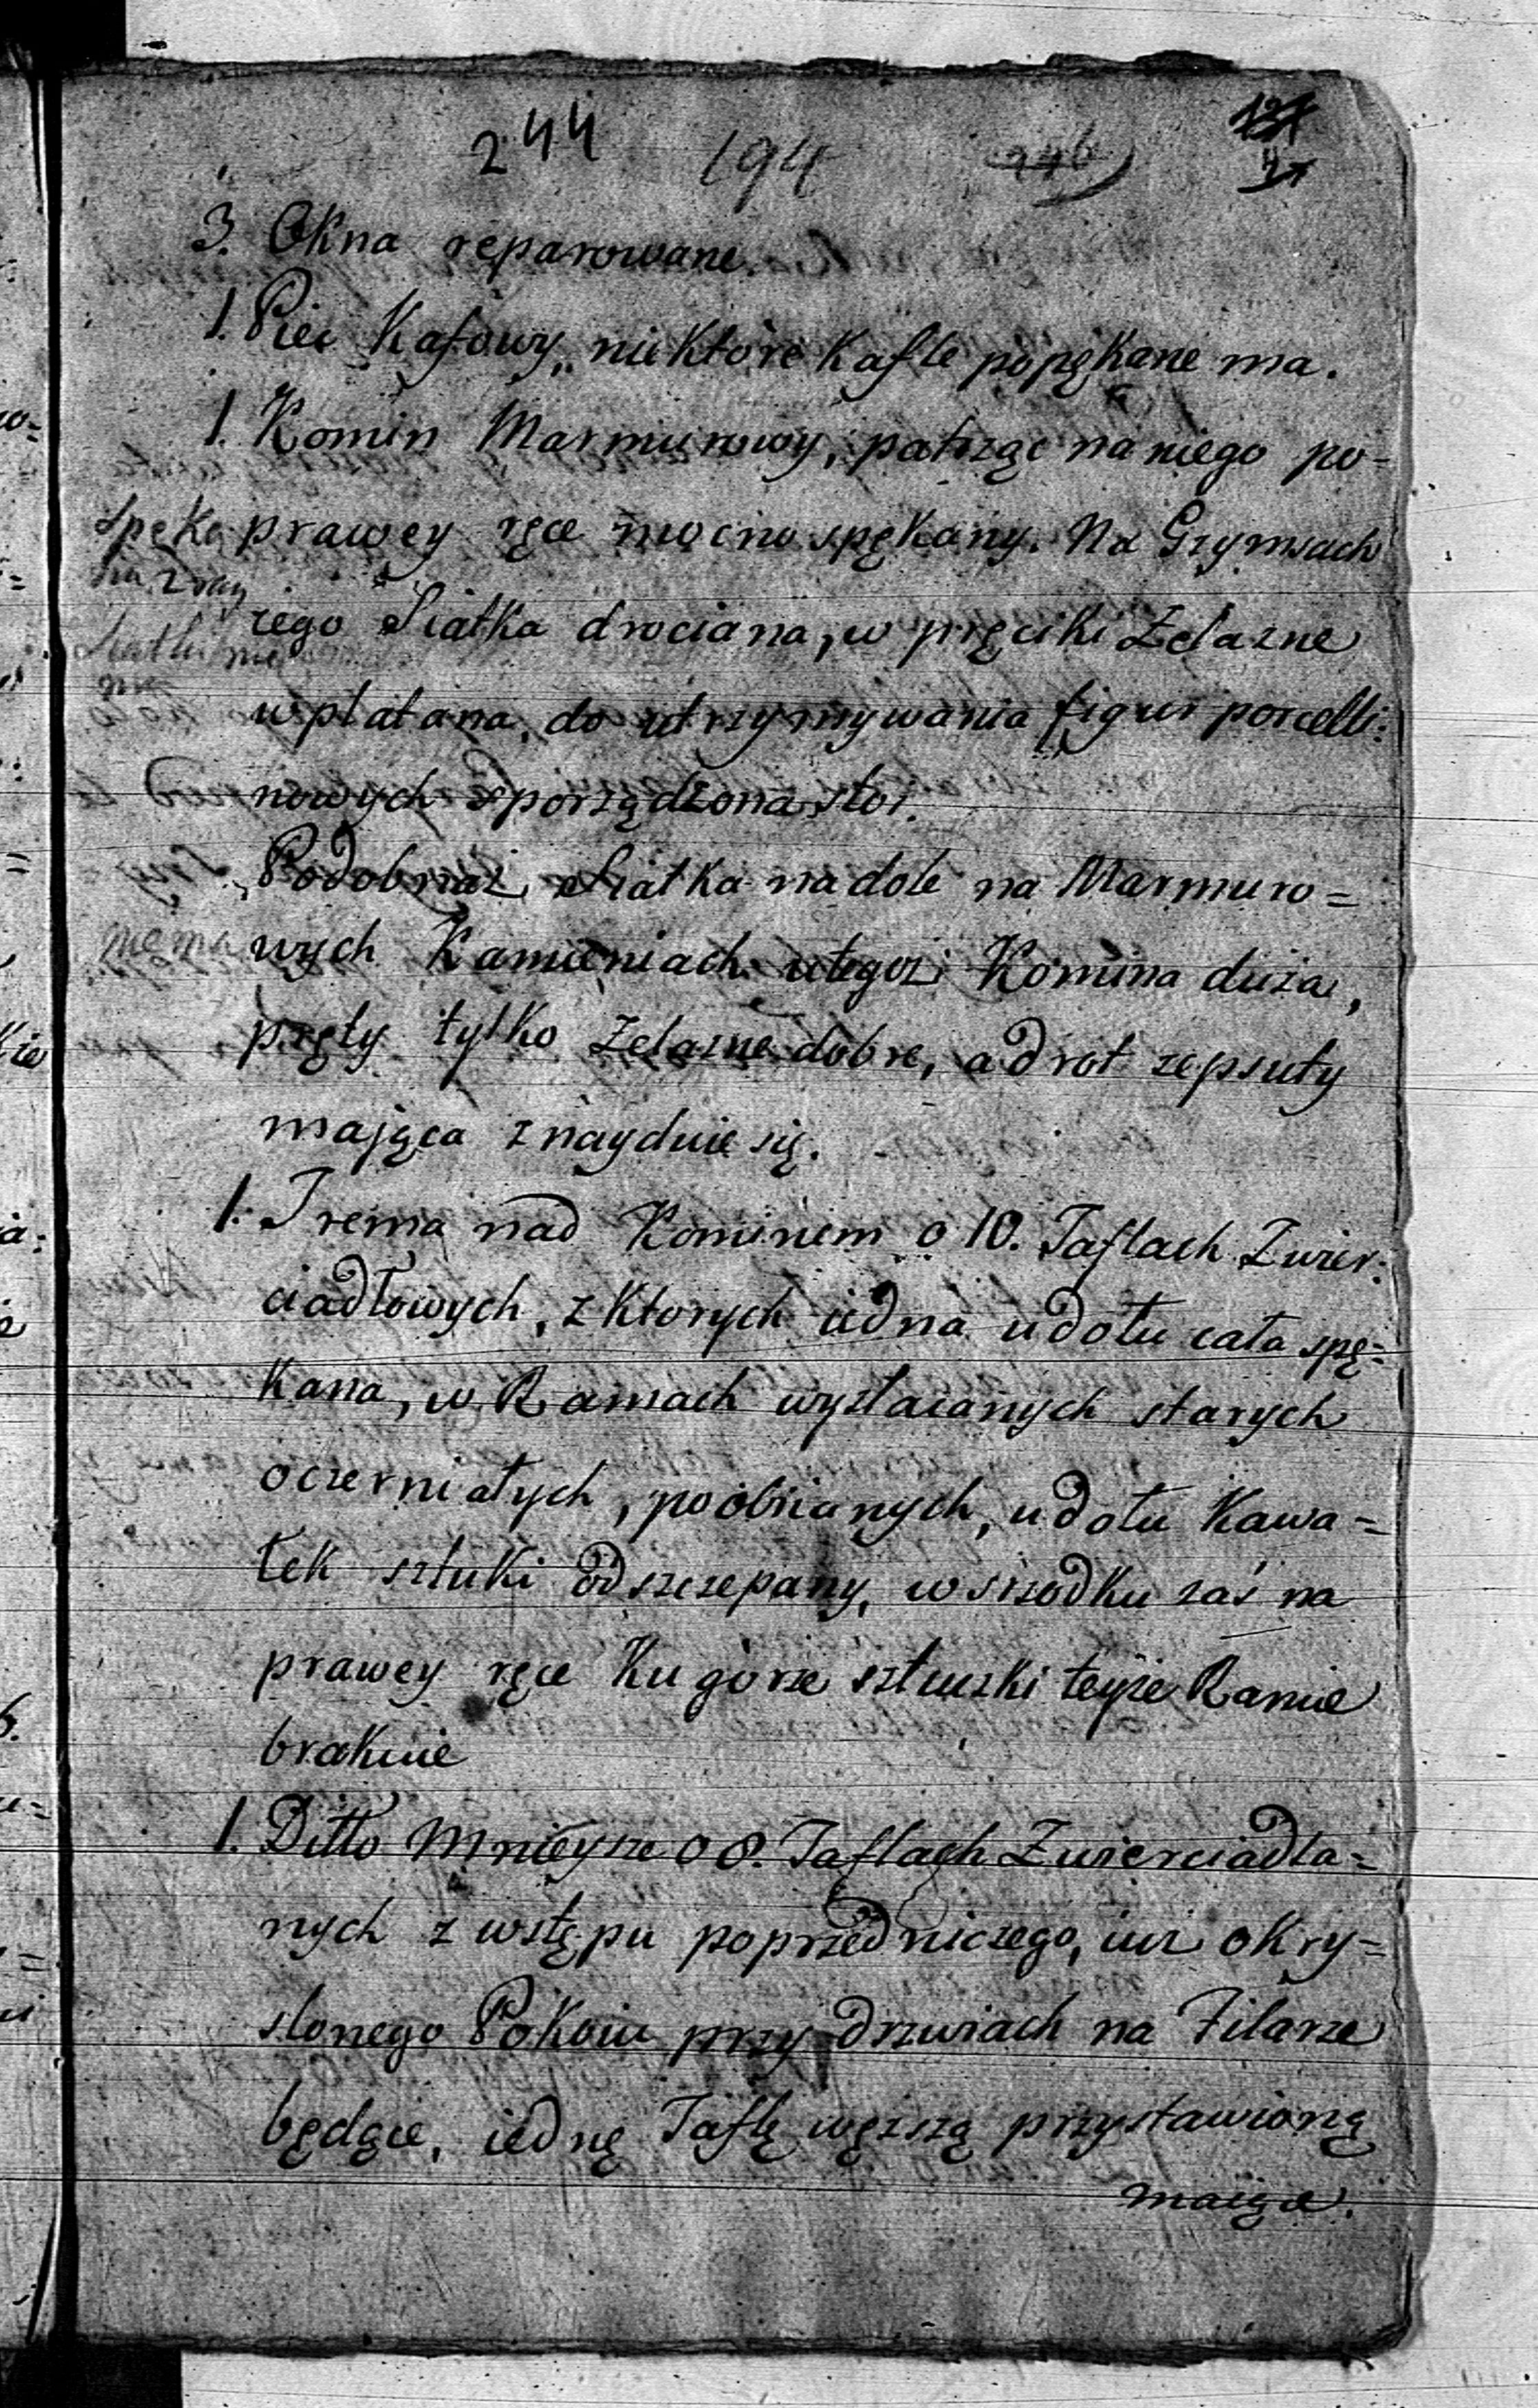 244 194
3. Okna reparowane.
1. Piec Kaflowy, niektóre kafle popękane ma.
1. Komin Marmurowy, patrząc na niego po-
spęka prawey ręce mocno spękany. Na Gzymsach
iego Siatka drociana, w pręciki Żelazne
wplatana, do utrzymywania figur porcelli:
nowych sporządzona stoi.
Podobnaż Siatka na dole na Marmuro=
niema wych Kamieniach utegoż Komina duża,
pręty tylko Żelazne dobre, a drot zepsuty
mająca znayduie się.
1. Trema nad Kominem o 10. Taflach Zwier:
ciadłowych, z Ktorych iedna u dołu cała spę=
kana, w Ramach wyzłacanych starych
oczerniałych, poobiianych, u dołu Kawa=
łek sztuki odszczepany, w srzodku zaś na
prawey ręce Ku górze sztuczki teyże Ramie
brakuie
1. Ditto Mnieysze o 8. Taflach Zwierciadla=
nych z wstępu poprzedniczego, iuż okry=
slonego Pokoiu przy drzwiach na Filarze
będące, iednę Taflę węższą przystawioną
maiące.